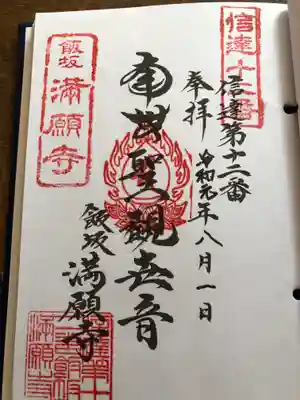 信達十二番
信達第十二番
奉拝 令和元年八月一日
南無聖観世音
飯坂 満願寺
飯坂
満願寺